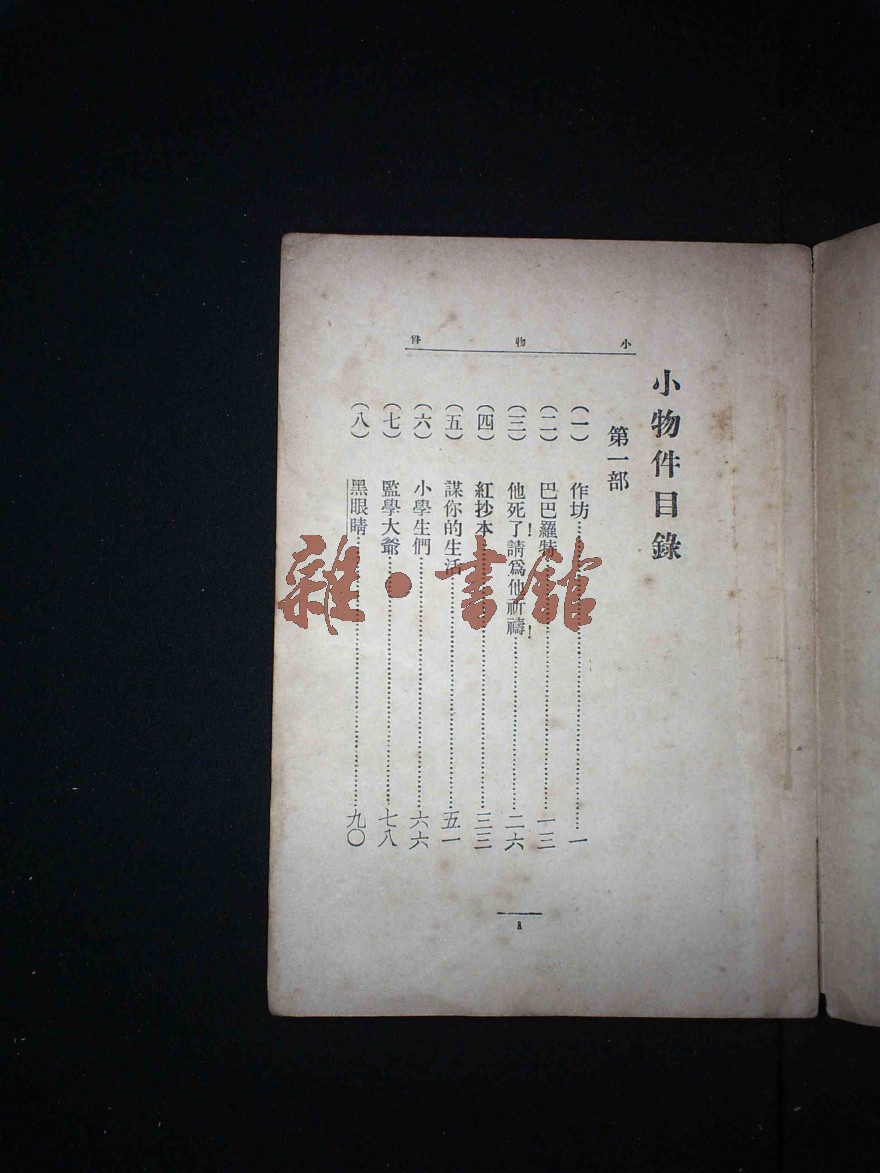 小物件
小物件目錄
第一部
(一) 作坊……一
(二) 巴巴羅特……一三
(三) 他死了!請爲他祈禱!……二六
(四) 紅抄本……三三
(五) 謀你的生活……五一
(六) 小學生們……六六
(七) 監學大爺……七八
(八) 黑眼睛……九〇
A
雜·書館